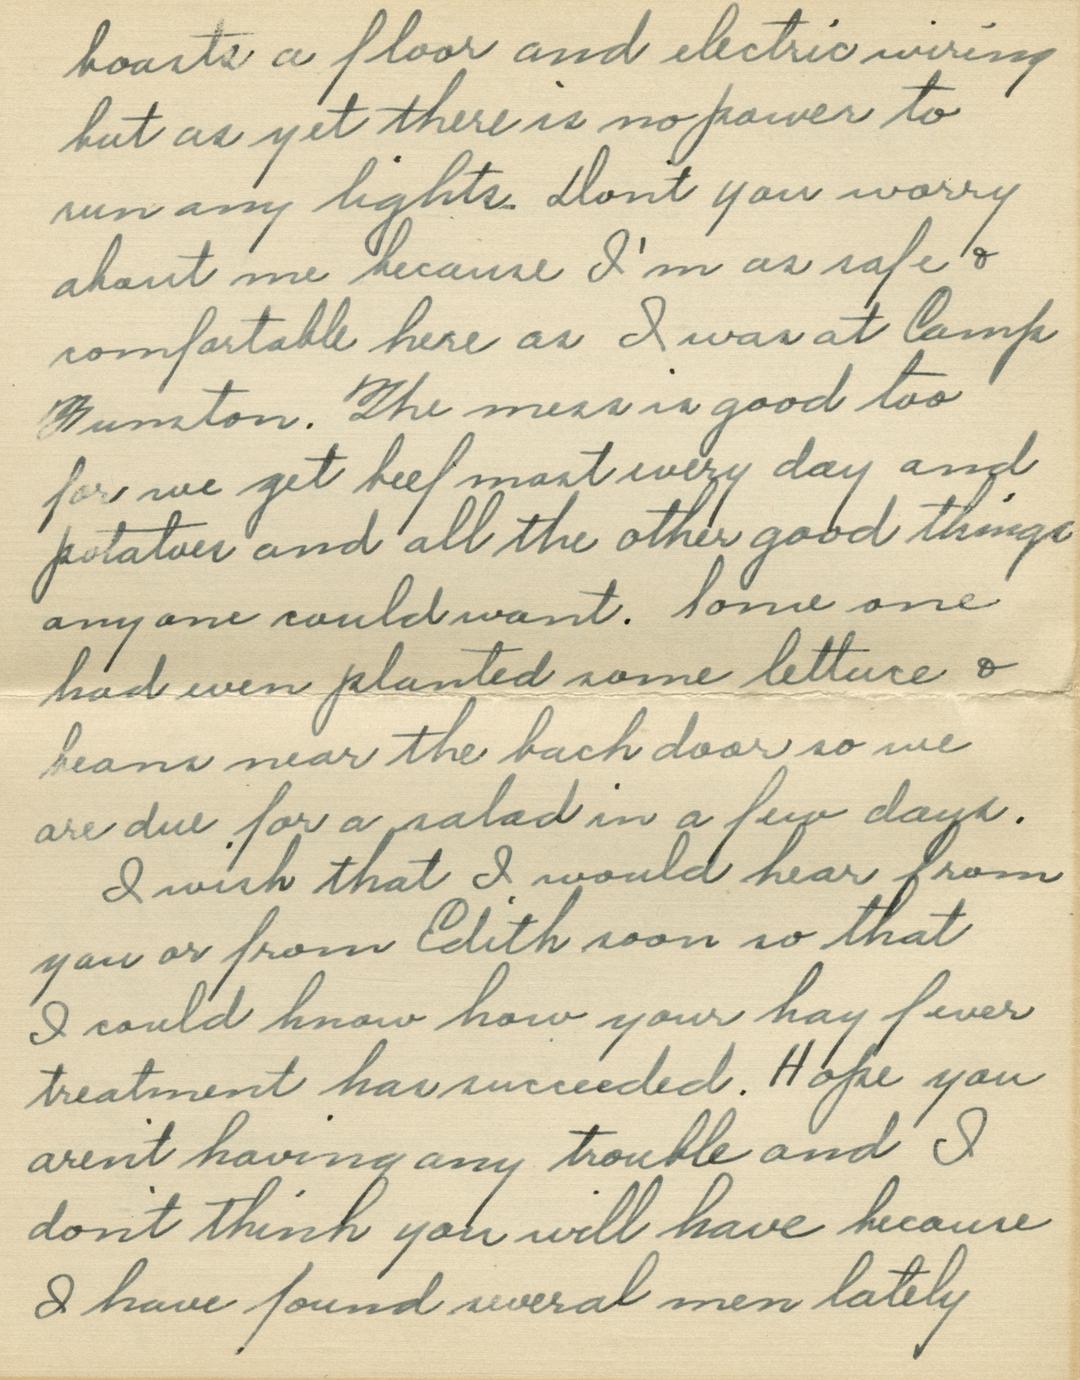 boasts a floor and electric wiring
but as yet there is no power to
run any lights. Don't you worry
about me because I'm as safe &
comfortable here as I was at Camp
Funston. The mess is good too
for we get beef most every day and
potatoes and all the other good things
any one could want. Some one
had even planted some lettuce &
beans near the back door so we
are due for a salad in a few days.
I wish that I would hear from
you or from Edith soon so that
I could know how your hay fever
treatment has succeeded. Hope you
aren't having any trouble and I
don't think you will have because
I have found several men lately